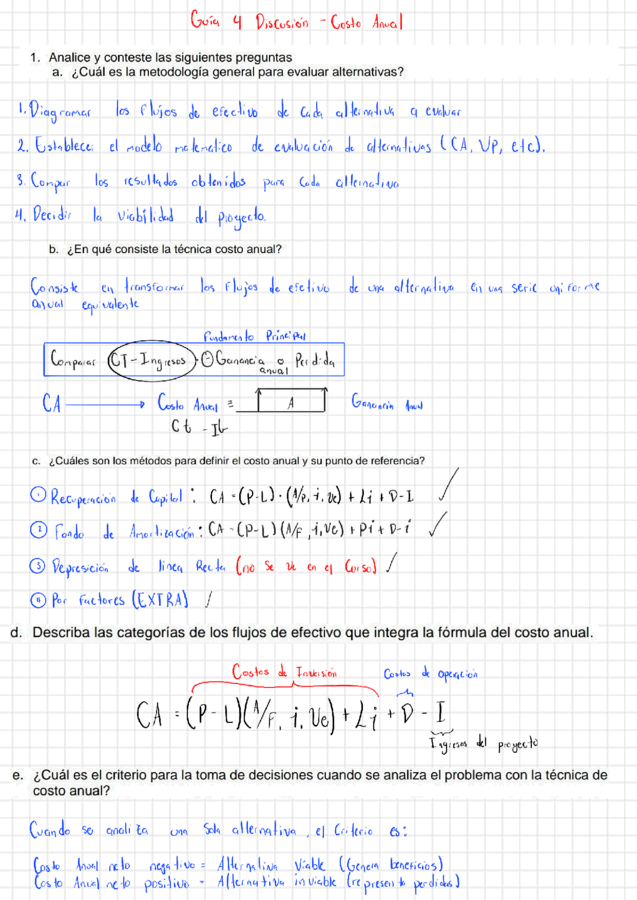 Guía 4 Discusión - Costo Anual
1. Analice y conteste las siguientes preguntas
a. ¿Cuál es la metodología general para evaluar alternativas?
1. Diagramar los flujos de efectivo de cada alternativa a evaluar
2. Establecer el modelo matematico de evaluación de alternativas (CA, VP, etc).
3. Compar los resultados obtenidos para cada alternativa
4. Decidir la viabilidad del proyecto.
b. ¿En qué consiste la técnica costo anual?
Consiste en transformar los flujos de efectivo de una alternativa en una serie uniforme
anual equivalente
Fundamento Principal
Comparar CT-Ingresos ⊖ Ganancia o Perdida
anual
CA → Costo Anual = A Ganancia Anual
Ct - It
c. ¿Cuáles son los métodos para definir el costo anual y su punto de referencia?
① Recuperación de Capital: CA = (P-L)·(A/P, i, Ve) + Li + D-I
② Fondo de Amortización: CA = (P-L)(A/F, i, Ve) + Pi + D-i
③ Depresición de linea Recta (no se ve en el Curso)
④ Por Factores (EXTRA)
d. Describa las categorías de los flujos de efectivo que integra la fórmula del costo anual.
Costos de Inversión Costos de operación
CA = (P-L)(A/F, i, Ve) + Li + D - I
Ingresos del proyecto
e. ¿Cuál es el criterio para la toma de decisiones cuando se analiza el problema con la técnica de
costo anual?
Cuando se analiza una sola alternativa, el Criterio es:
Costo Anual neto negativo = Alternativa Viable (Genera beneficios)
Costo Anual neto positivo = Alternativa inviable (represento perdidas)